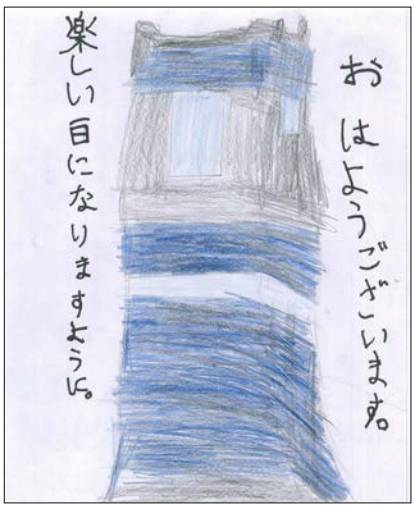 おはようございます。
楽しい日になりますように。